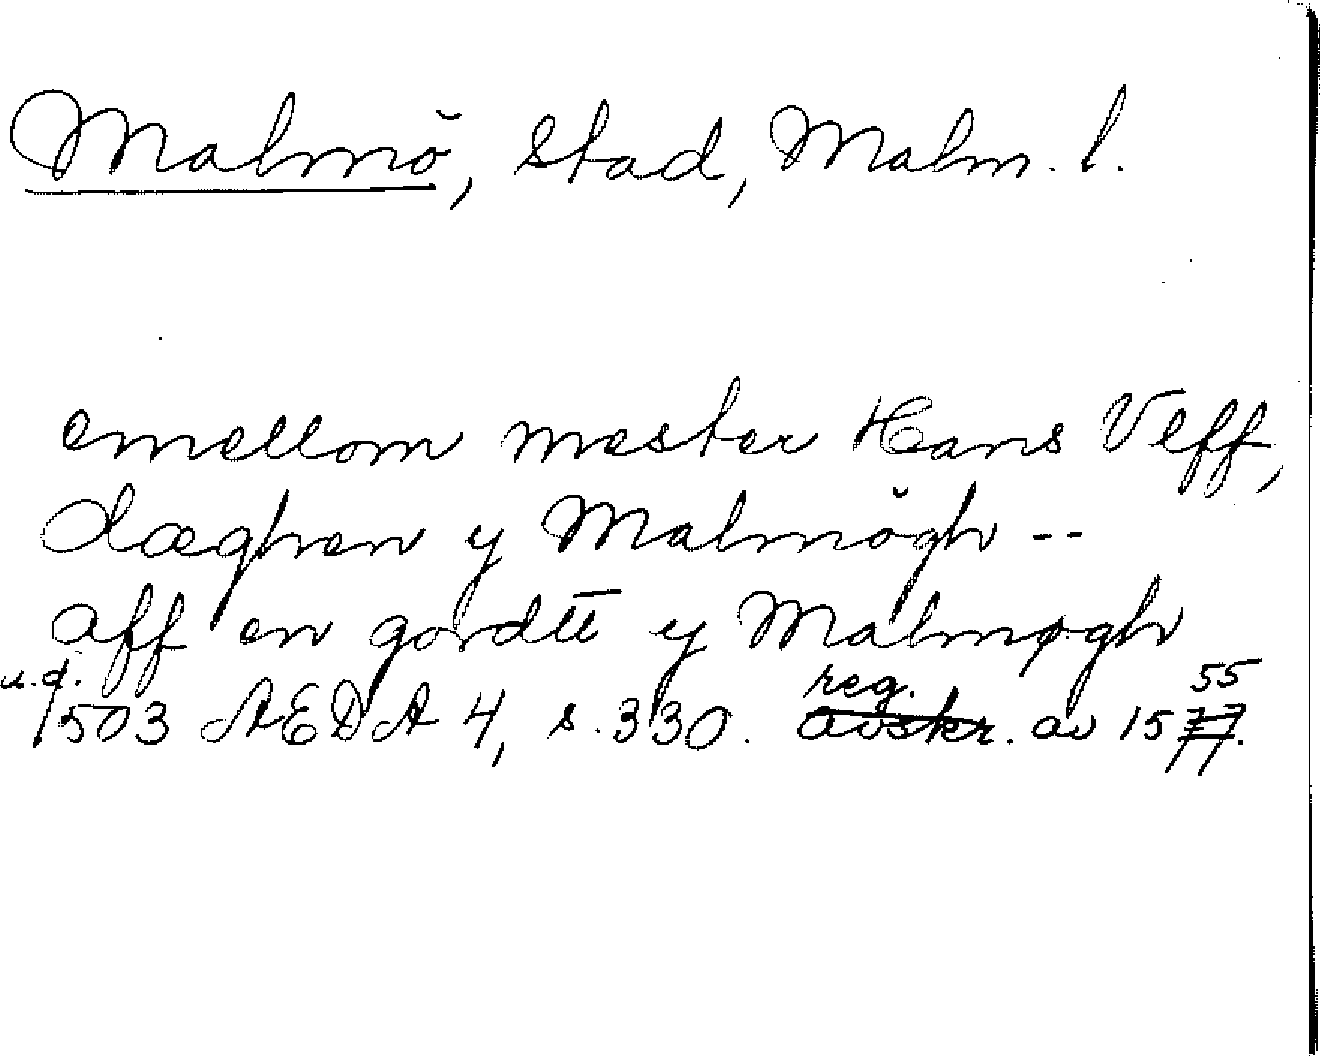 Malmö, stad, Malm. l.
emellom mester Hans Vlff,
dæghen y Malmögh --
aff en gordtt y Malmøgh
u.d. reg. 55
1503 AEDA 4, s. 330. avskr. av 1577.